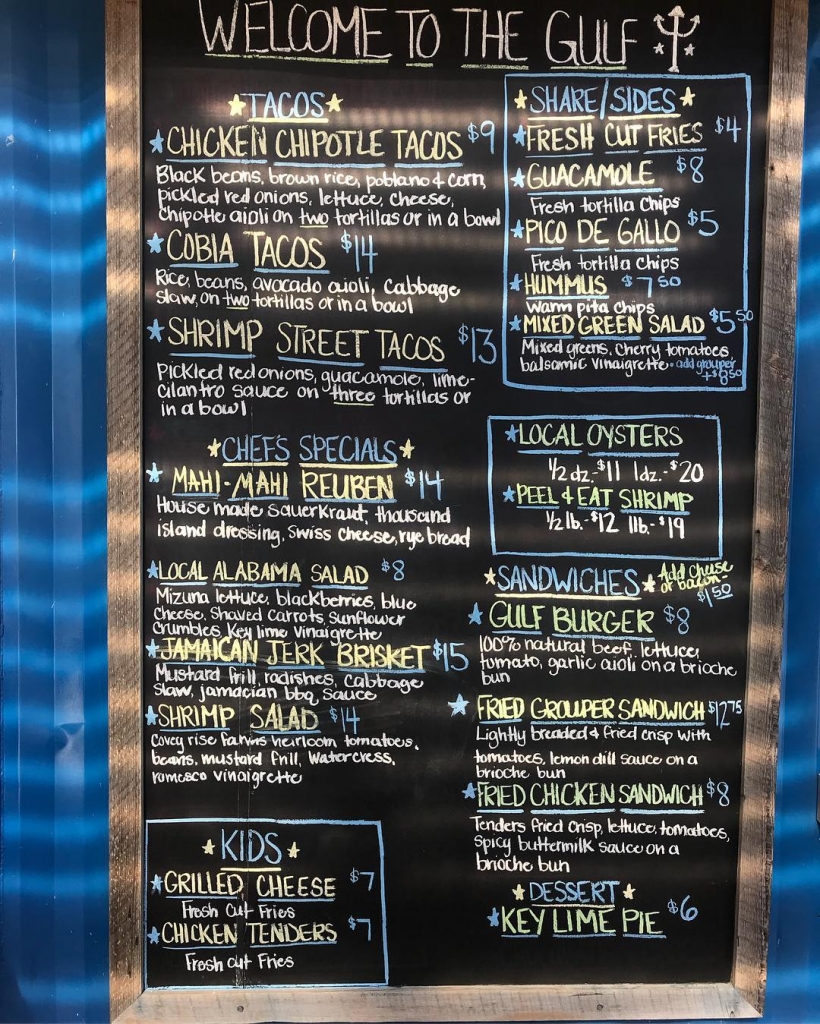 WELCOME TO THE GULF
TACOS
CHICKEN CHIPOTLE TACOS $9
Black beans, brown rice, poblano & corn,
pickled red onions, lettuce, cheese,
chipotle aioli on two tortillas or in a bowl
COBIA TACOS $14
Rice, beans, avocado aioli, cabbage
slaw, on two tortillas or in a bowl
SHRIMP STREET TACOS $13
Pickled red onions, guacamole, lime-
cilantro sauce on three tortillas or
in a bowl
CHEFS SPECIALS
MAHI-MAHI REUBEN $14
House made sauerkraut, thousand
island dressing, Swiss cheese, rye bread
LOCAL ALABAMA SALAD $8
Mizuna lettuce, blackberries, blue
cheese, Shaved Carrots, Sunflower
Crumbles, Key lime Vinaigrette
JAMAICAN JERK BRISKET $15
Mustard frill, radishes, Cabbage
Slaw, jamacian bbq sauce
SHRIMP SALAD $14
Covey rise farms heirloom tomatoes,
beans, mustard frill, Watercress,
romesco vinaigrette
KIDS
GRILLED CHEESE $7
Fresh Cut Fries
CHICKEN TENDERS $7
Fresh cut Fries
SHARE/SIDES
FRESH CUT FRIES $4
GUACAMOLE $8
Fresh tortilla Chips
PICO DE GALLO $5
Fresh tortilla Chips
HUMMUS $7 50
Warm pita Chips
MIXED GREEN SALAD $5 50
Mixed greens, Cherry tomatoes,
balsamic vinaigrette - add grouper
+$8 50
LOCAL OYSTERS
1/2 dz.-$11 1dz.-$20
PEEL & EAT SHRIMP
1/2 lb.-$12 1lb.-$19
SANDWICHES Add Cheese
or bacon-
$1 50
GULF BURGER $8
100% natural beef, lettuce,
tomato, garlic aioli on a brioche
bun
FRIED GROUPER SANDWICH $12 75
Lightly breaded & fried crisp with
tomatoes, lemon dill sauce on a
brioche bun
FRIED CHICKEN SANDWICH $8
Tenders fried crisp, lettuce, tomatoes,
Spicy buttermilk sauce on a
brioche bun
DESSERT
KEY LIME PIE $6